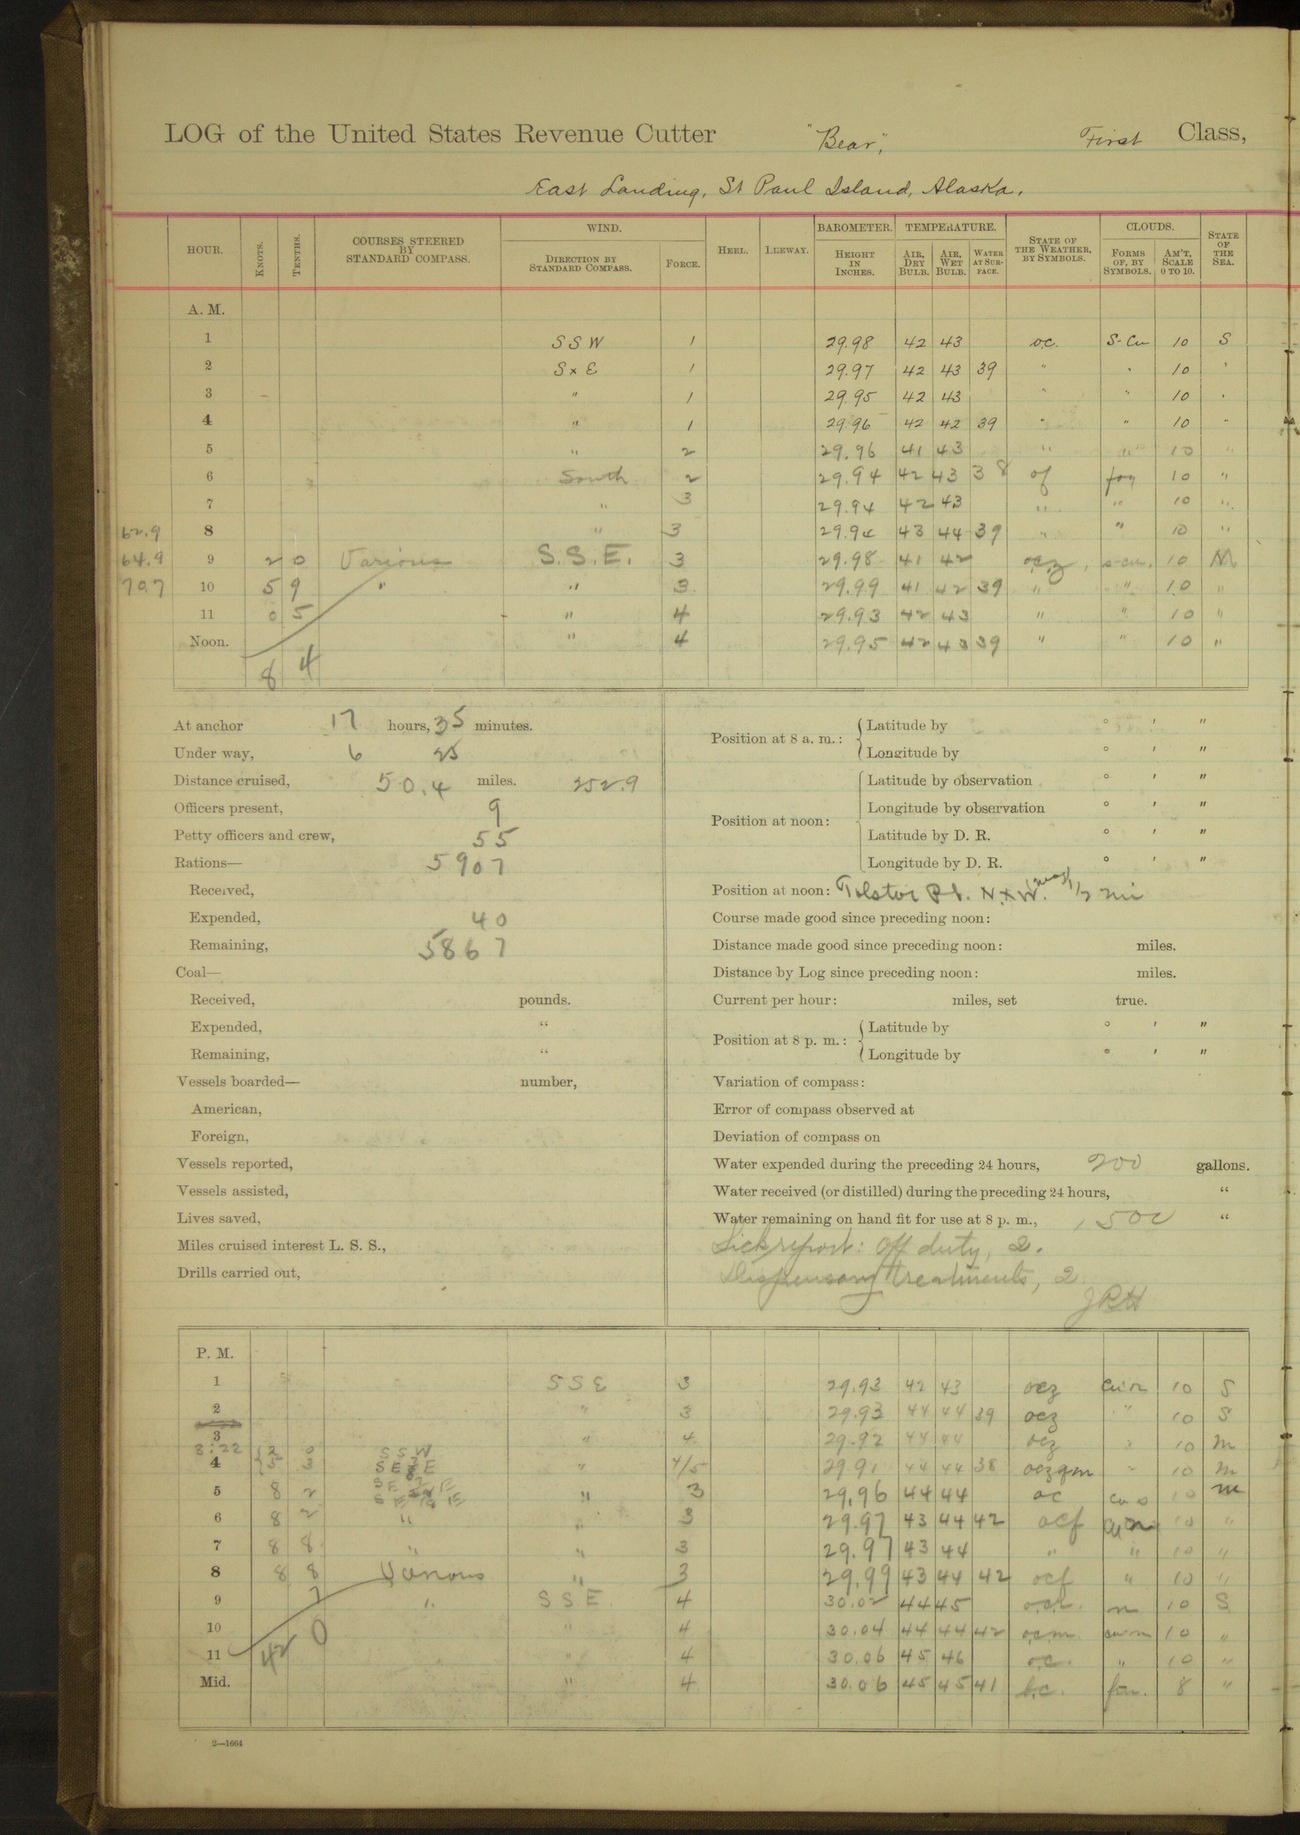 LOG of the United States Revenue Cutter "Bear," First Class,
East Landing, St Paul Island, Alaska.
HOUR. KNOTS. TENTHS. COURSES STEERED BY STANDARD COMPASS. WIND. DIRECTION BY STANDARD COMPASS. FORCE. HEEL. LEEWAY. BAROMETER. HEIGHT IN INCHES. TEMPERATURE. AIR, DRY BULB. AIR, WET BULB. WATER AT SURFACE. STATE OF THE WEATHER, BY SYMBOLS. CLOUDS. FORMS OF, BY SYMBOLS. AM'T, SCALE 0 TO 10. STATE OF THE SEA.
A. M.
1 SSW 1 29.98 42 43 o.c. S-Cu 10 S
2 SxE 1 29.97 42 43 39 " " 10 "
3 " 1 29.95 42 43 " " 10 "
4 " 1 29.96 42 42 39 " " 10 "
5 " 2 29.96 41 43 " " 10 "
6 South 2 29.94 42 43 38 of fog 10 "
7 " 3 29.94 42 43 " " 10 "
62.9 8 " 3 29.94 43 44 39 " " 10 "
64.9 9 2 0 Various S.S.E. 3 29.98 41 42 ocz, s-cu. 10 M
70.7 10 5 9 " " 3 29.99 41 42 39 " " 10 "
11 0 5 " 4 29.93 42 43 " " 10 "
Noon. " 4 29.95 42 43 39 " " 10 "
8 4
At anchor 17 hours, 35 minutes.
Under way, 6 25
Distance cruised, 50.4 miles. 252.9
Officers present, 9
Petty officers and crew, 55
Rations— 5907
Received,
Expended, 40
Remaining, 5867
Coal—
Received, pounds.
Expended, "
Remaining, "
Vessels boarded— number,
American,
Foreign,
Vessels reported,
Vessels assisted,
Lives saved,
Miles cruised interest L. S. S.,
Drills carried out,
Position at 8 a. m.: Latitude by ° ′ ″
Longitude by ° ′ ″
Position at noon: Latitude by observation ° ′ ″
Longitude by observation ° ′ ″
Latitude by D. R. ° ′ ″
Longitude by D. R. ° ′ ″
Position at noon: Tolstoi Pt. NxW. 1/2 mi
Course made good since preceding noon:
Distance made good since preceding noon: miles.
Distance by Log since preceding noon: miles.
Current per hour: miles, set true.
Position at 8 p. m.: Latitude by ° ′ ″
Longitude by ° ′ ″
Variation of compass:
Error of compass observed at
Deviation of compass on
Water expended during the preceding 24 hours, 200 gallons.
Water received (or distilled) during the preceding 24 hours, "
Water remaining on hand fit for use at 8 p. m., 1500 "
Sick report: Off duty, 2.
Dispensary treatments, 2
P. M.
1 SSE 3 29.93 42 43 ocz cu-n 10 S
2 " 3 29.93 44 44 39 ocz " 10 S
3 " 4 29.92 44 44 ocz " 10 m
3:22 2 0 SSW
4 5 3 " 4/5 29.91 44 44 38 oczqm " 10 m
5 8 2 " 3 29.96 44 44 oc 10 m
6 8 2 " " 3 29.97 43 44 42 ocf cu-n 10 "
7 8 8 " " 3 29.97 43 44 " " 10 "
8 8 8 Various " 3 29.99 43 44 42 ocf " 10 "
9 7 " SSE. 4 30.02 44 45 n 10 S
10 " 4 30.04 44 44 42 o.c.m cu-n 10 "
11 " 4 30.06 45 46 o.c. " 10 "
Mid. " 4 30.06 45 45 41 b.c. 8 "
42 0
2—1664